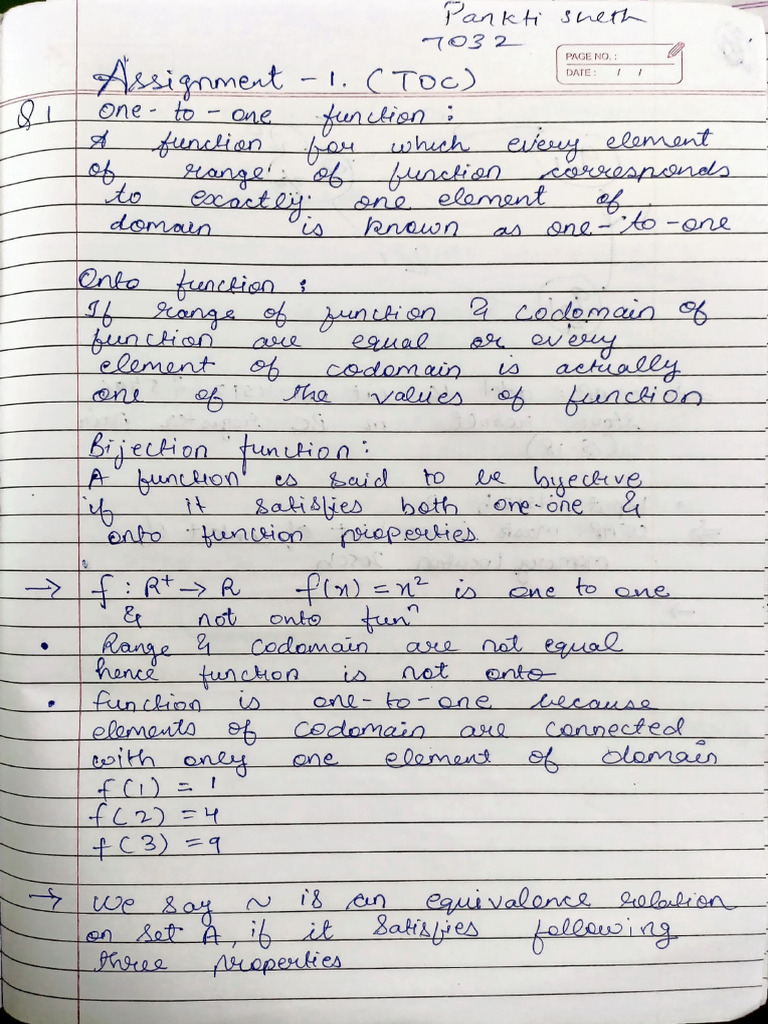 Pankti Sheth
7032
PAGE NO. :
DATE : / /
Assignment - 1. (TOC)
Q1 one-to-one function :
A function for which every element
of range of function corresponds
to exactly one element of
domain is known as one-to-one
Onto function :
If range of function & codomain of
function are equal or every
element of codomain is actually
one of the values of function
Bijection function :
A function is said to be byective
if it satisfies both one-one &
onto function properties.
→ f : R⁺ → R f(x) = x² is one to one
& not onto funⁿ
• Range & codomain are not equal
hence function is not onto
• function is one-to-one because
elements of codomain are connected
with only one element of domain
f(1) = 1
f(2) = 4
f(3) = 9
→ We say ~ is an equivalence relation
on set A, if it satisfies following
three properties